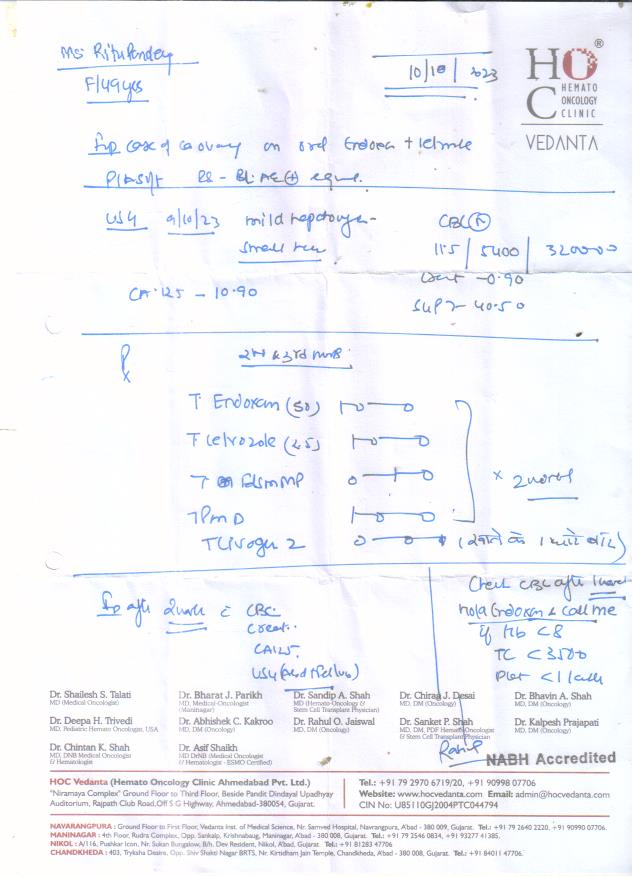 Ms. Ritu Pandey
F/49 yrs
10/10/2023
HOC®
HEMATO
ONCOLOGY
CLINIC
VEDANTA
case of ca ovary on oral Endoxan +
RS - BL AE (+) equal
USG 9/10/23 mild
CBC (N)
11.5 / 5400 / 320000
Creat - 0.90
CA 125 - 10.90
SGPT - 40.50
Rx
2nd & 3rd
T Endoxan (50)
T Letrozole (2.5)
T
T Pm D
T Livogen 2
after 2 with c CBC
Creat.
CA125.
USG
Check CBC after 1
hold Endoxan & call me
if Hb <8
TC <3500
Plat <1 lakh
Rahul
Dr. Shailesh S. Talati
MD (Medical Oncologist)
Dr. Bharat J. Parikh
MD, Medical-Oncologist
(Maninagar)
Dr. Sandip A. Shah
MD (Hemato-Oncology &
Stem Cell Transplant Physician)
Dr. Chirag J. Desai
MD, DM (Oncology)
Dr. Bhavin A. Shah
MD, DM (Oncology)
Dr. Deepa H. Trivedi
MD, Pediatric Hemato Oncologist, USA
Dr. Abhishek C. Kakroo
MD, DM (Oncology)
Dr. Rahul O. Jaiswal
MD, DM (Oncology)
Dr. Sanket P. Shah
MD, DM, PDF Hemato Oncologist
& Stem Cell Transplant Physician
Dr. Kalpesh Prajapati
MD, DM (Oncology)
Dr. Chintan K. Shah
MD, DNB Medical Oncologist
& Hematologist
Dr. Asif Shaikh
MD DrNB (Medical Oncologist
& Hematologist - ESMO Certified)
NABH Accredited
HOC Vedanta (Hemato Oncology Clinic Ahmedabad Pvt. Ltd.)
"Niramaya Complex" Ground Floor to Third Floor, Beside Pandit Dindayal Upadhyay
Auditorium, Rajpath Club Road, Off S G Highway, Ahmedabad-380054, Gujarat.
Tel.: +91 79 2970 6719/20, +91 90998 07706
Website: www.hocvedanta.com Email: admin@hocvedanta.com
CIN No: U85110GJ2004PTC044794
NAVARANGPURA : Ground Floor to First Floor, Vedanta Inst. of Medical Science, Nr. Samved Hospital, Navrangpura, A'bad - 380 009, Gujarat. Tel.: +91 79 2640 2220, +91 90990 07706.
MANINAGAR : 4th Floor, Rudra Complex, Opp. Sankalp, Krishnabaug, Maninagar, Abad - 380 008, Gujarat. Tel.: +91 79 2546 0834, +91 93277 41385.
NIKOL : A/116, Pushkar Icon, Nr. Sukan Bungalow, B/h. Dev Resident, Nikol, A'bad, Gujarat Tel.: +91 81283 47706
CHANDKHEDA : 403, Tryksha Desire, Opp. Shiv Shakti Nagar BRTS, Nr. Kirtidham Jain Temple, Chandkheda, A'bad - 380 008, Gujarat. Tel.: +91 84011 47706.